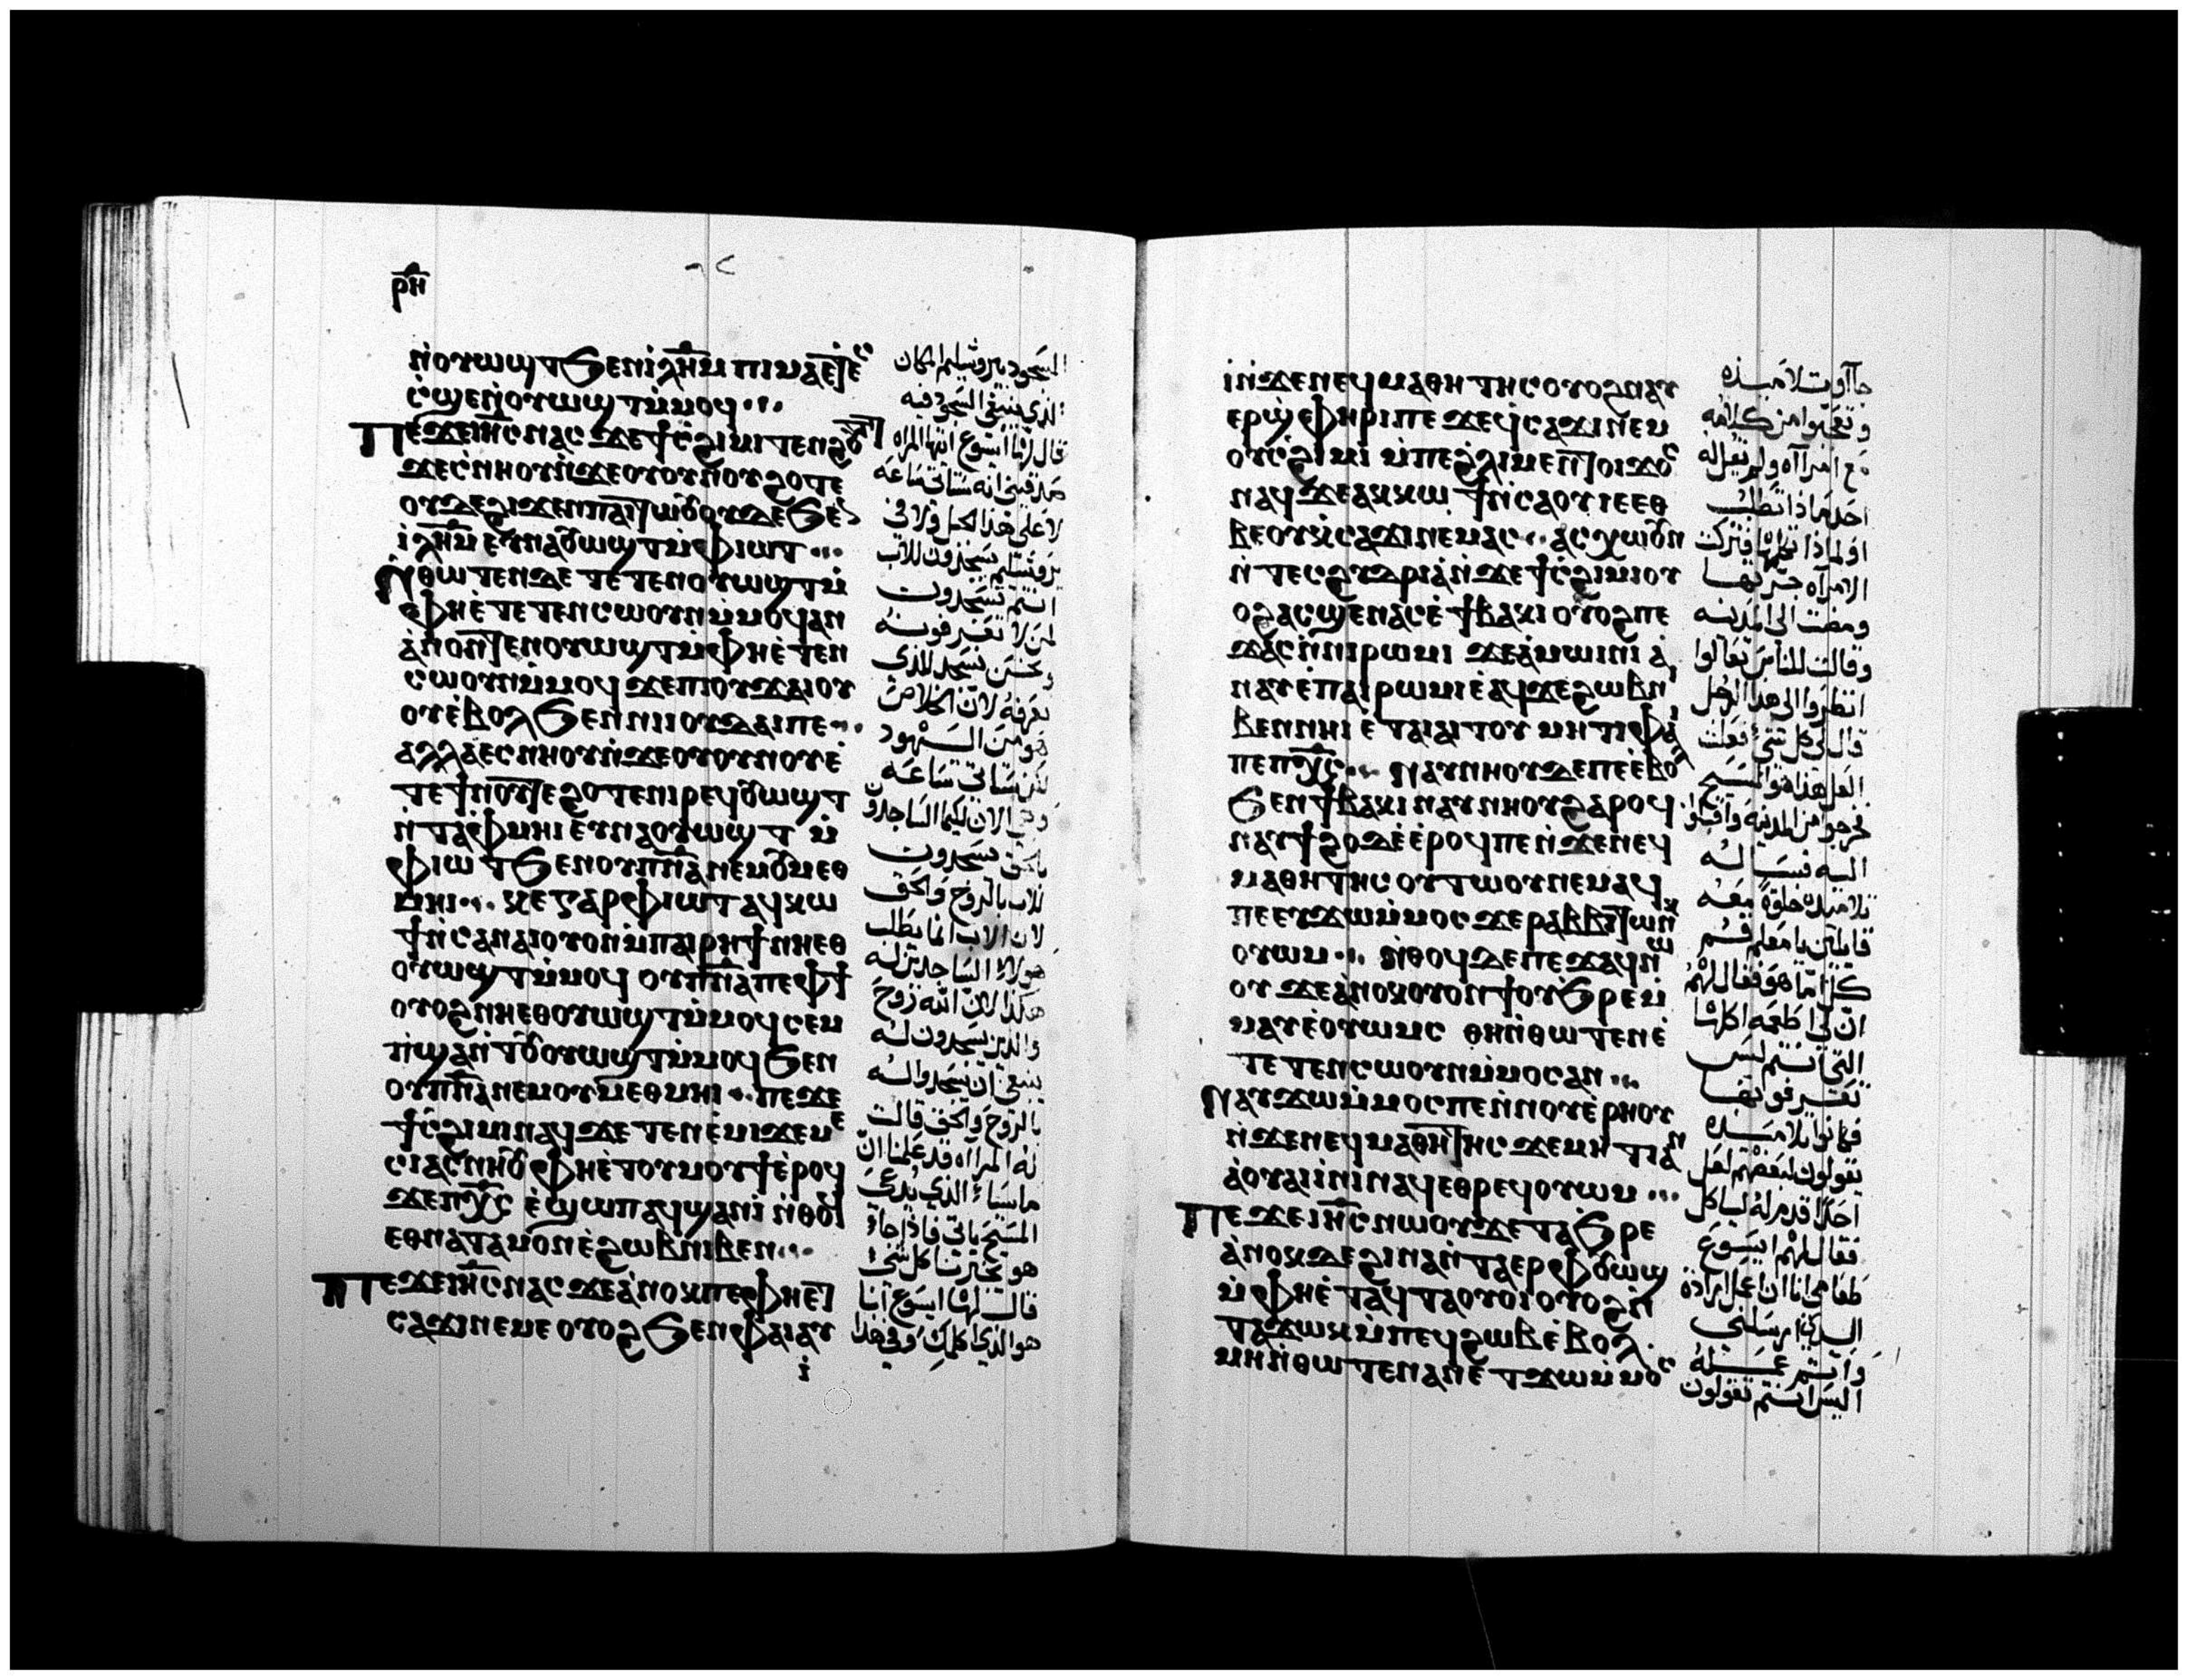 ⲣⲏ
ⲛ̀ⲟⲩⲱϣⲧ ϧⲉⲛ ⲓⲗ̅ⲏ̅ⲙ ⲡⲓⲙⲁ ⲉⲧⲉ
ⲥ̀ϣⲉ ⲛ̀ⲟⲩⲱϣⲧ ⲙ̀ⲙⲟϥ
ⲡⲉϫⲉ ⲓⲏ̅ⲥ ⲛⲁⲥ ϫⲉ ϯⲥ̀ϩⲓⲙⲓ ⲧⲉⲛϩⲟⲩⲧ
ϫⲉ ⲥ̀ⲛⲏⲟⲩ ⲛ̀ϫⲉ ⲟⲩⲟⲩⲛⲟⲩ ϩⲟⲧⲉ
ⲟⲩⲇⲉ ϩⲓϫⲉⲛ ⲡⲁⲓⲧⲱⲟⲩ ⲟⲩⲇⲉ ϧⲉⲛ
ⲓⲗ̅ⲏ̅ⲙ ⲉⲩⲛⲁⲟⲩⲱϣⲧ ⲙ̀ⲫⲓⲱⲧ
ⲛ̀ⲑⲱⲧⲉⲛ ⲇⲉ ⲧⲉⲧⲉⲛⲟⲩⲱϣⲧ ⲙ̀
ⲫⲏⲉ̀ⲧⲉⲧⲉⲛⲥⲱⲟⲩⲛ ⲙ̀ⲙⲟϥ ⲁⲛ
ⲁ̀ⲛⲟⲛ ⲧⲉⲛⲟⲩⲱϣⲧ ⲙ̀ⲫⲏⲉ̀ⲧⲉⲛ
ⲥⲱⲟⲩⲛ ⲙ̀ⲙⲟϥ ϫⲉ ⲡⲓⲟⲩϫⲁⲓ ⲟⲩ
ⲟⲩⲉ̀ⲃⲟⲗ ϧⲉⲛ ⲛⲓⲓⲟⲩⲇⲁⲓ ⲡⲉ
ⲁⲗⲗⲁ ⲉⲥⲛⲏⲟⲩ ⲛ̀ϫⲉ ⲟⲩⲟⲩⲛⲟⲩ ⲉ̀
ⲧⲉ ϯⲛⲟⲩ ⲧⲉ ϩⲟⲧⲉ ⲛⲓⲣⲉϥⲟⲩⲱϣⲧ
ⲛ̀ⲧⲁⲫⲙⲏⲓ ⲉⲩⲛⲁⲟⲩⲱϣⲧ ⲙ̀
ⲫⲓⲱⲧ ϧⲉⲛ ⲟⲩⲡⲛ̅ⲁ ⲛⲉⲙ ⲟⲩⲙⲉⲑ
ⲙⲏⲓ ⲕⲉ ⲅⲁⲣ ⲫⲓⲱⲧ ⲁϥⲕⲱ
ϯ ⲛ̀ⲥⲁ ⲛⲁⲓ ⲟⲩⲟⲛ ⲙ̀ⲡⲁⲓⲣⲏϯ ⲛⲏⲉⲑ
ⲟⲩⲱϣⲧ ⲙ̀ⲙⲟϥ ⲟⲩⲡⲛ̅ⲁ ⲡⲉ ⲫϯ
ⲟⲩⲟϩ ⲛⲏⲉⲑⲟⲩⲱϣⲧ ⲙ̀ⲙⲟϥ ⲥⲉⲙ
ⲡ̀ϣⲁ ⲛ̀ⲧⲟⲩⲟⲩⲱϣⲧ ⲙ̀ⲙⲟϥ ϧⲉⲛ
ⲟⲩⲡⲛ̅ⲁ ⲛⲉⲙ ⲟⲩⲙⲉⲑⲙⲏⲓ ⲡⲉϫⲉ
ϯⲥ̀ϩⲓⲙⲓ ⲛⲁϥ ϫⲉ ⲧⲉⲛⲉ̀ⲙⲓ ϫⲉ ⲙⲉ
ⲥⲓⲁⲥ ⲛⲏⲟⲩ ⲫⲏⲉ̀ⲧⲟⲩⲙⲟⲩϯ ⲉ̀ⲣⲟϥ
ϫⲉ ⲡⲭ̅ⲥ ⲉ̀ϣⲱⲡ ⲁϥϣⲁⲛⲓ̀ ⲛ̀ⲑⲟϥ
ⲉⲑⲛⲁⲧⲁⲙⲟⲛ ⲉ̀ϩⲱⲃ ⲛⲓⲃⲉⲛ
ⲡⲉϫⲉ ⲓⲏ̅ⲥ ⲛⲁⲥ ϫⲉ ⲁ̀ⲛⲟⲕ ⲡⲉ ⲫⲏⲉⲧ
ⲥⲁϫⲓ ⲛⲉⲙⲉ ⲟⲩⲟϩ ϧⲉⲛ ⲫⲁⲓ ⲁⲩ
ⲓ̀
السجود بيروشليم المكان
الذي ينبغي السجود فيه
قال لها ايسوع ايتها المراه
صدقيني انه ستاتي ساعه
لا على هذا الجبل ولا في
يروشليم يسجدون للاب
انتم تسجدون
لمن لا تعرفونه
ونحن نسجد للذي
نعرفه لان الخلاص
هو من اليهود
لكن ستاتي ساعه
وهي الان لكيما الساجدون
بالحق يسجدون
للاب بالروح والحق
لان الاب انما يطلب
هولاي الساجدين له
هكذا لان الله روح
والذين يسجدون له
ينبغي ان يسجدوا له
بالروح والحق قالت
له المراه قد علمنا ان
ماسيا الذي يدعى
المسيح ياتي فاذا جا
هو يخبرنا كل شي
قال لها ايسوع انا
هو الذي اكلمك وفي هذا
ⲓ̀ ⲛ̀ϫⲉ ⲛⲉϥⲙⲁⲑⲏⲧⲏⲥ ⲟⲩⲟϩ ⲛⲁⲩ
ⲉⲣϣ̀ⲫⲏⲣⲓ ⲡⲉ ϫⲉ ϥ̀ⲥⲁϫⲓ ⲛⲉⲙ
ⲟⲩⲥ̀ϩⲓⲙⲓ ⲙ̀ⲡⲉ ϩⲗⲓ ⲙⲉⲛⲧⲟⲓ ϫⲟⲥ
ⲛⲁϥ ϫⲉ ⲁⲕⲕⲱϯ ⲛ̀ⲥⲁ ⲟⲩ ⲓⲉ ⲉⲑ
ⲃⲉ ⲟⲩ ⲕ̀ⲥⲁϫⲓ ⲛⲉⲙⲁⲥ ⲁⲥⲭⲱ ⲟⲩⲛ
ⲛ̀ⲧⲉⲥϩⲩⲇⲣⲓⲁ ⲛ̀ϫⲉ ϯⲥ̀ϩⲓⲙⲓ ⲟⲩ
ⲟϩ ⲁⲥϣⲉⲛⲁⲥ ⲉ̀ϯⲃⲁⲕⲓ ⲟⲩⲟϩ ⲡⲉ
ϫⲁⲥ ⲛ̀ⲛⲓⲣⲱⲙⲓ ϫⲉ ⲁ̀ⲙⲱⲓⲛⲓ ⲁ̀
ⲛⲁⲩ ⲉ̀ⲡⲁⲓⲣⲱⲙⲓ ⲉ̀ⲁϥϫⲉ ϩⲱⲃ ⲛⲓ
ⲃⲉⲛ ⲛⲏⲓ ⲉ̀ⲧⲁⲓⲁⲓⲧⲟⲩ ⲙⲏⲧⲓ ⲫⲁⲓ
ⲡⲉ ⲡⲭ̅ⲥ ⲛⲁⲩⲛⲏⲟⲩ ⲇⲉ ⲡⲉ ⲉ̀ⲃⲟⲗ
ϧⲉⲛ ϯⲃⲁⲕⲓ ⲛⲁⲩⲛⲏⲟⲩ ϩⲁⲣⲟϥ
ⲛⲁⲩϯϩⲟ ⲇⲉ ⲉ̀ⲣⲟϥ ⲡⲉ ⲛ̀ϫⲉ ⲛⲉϥ
ⲙⲁⲑⲏⲧⲏⲥ ⲟⲩⲧⲱⲟⲩ ⲛⲉⲙⲁϥ
ⲡⲉ ⲉⲩϫⲱ ⲙ̀ⲙⲟⲥ ϫⲉ ⲣⲁⲃⲃⲓ ⲧⲱⲛⲕ
ⲟⲩⲱⲙ ⲛ̀ⲑⲟϥ ⲇⲉ ⲡⲉϫⲁϥ ⲛⲱ
ⲟⲩ ϫⲉ ⲁ̀ⲛⲟⲕ ⲟⲩⲟⲛϯ ⲟⲩϧⲣⲉ ⲙ̀
ⲙⲁⲩ ⲉ̀ⲟⲩⲟⲙⲥ ⲑⲏ ⲛ̀ⲑⲱⲧⲉⲛ ⲉ̀
ⲧⲉⲧⲉⲛⲥⲱⲟⲩⲛ ⲙ̀ⲙⲟⲥ ⲁⲛ
ⲛⲁⲩϫⲱ ⲙ̀ⲙⲟⲥ ⲡⲉ ⲛ̀ⲛⲟⲩⲉ̀ⲣⲏⲟⲩ
ⲛ̀ϫⲉ ⲛⲉϥⲙⲁⲑⲏⲧⲏⲥ ϫⲉ ⲙⲏⲧⲓ ⲁⲛ
ⲁ̀ ⲟⲩⲁⲓ ⲓ̀ⲛⲓ ⲛⲁϥ ⲉⲑⲣⲉϥⲟⲩⲱⲙ
ⲡⲉϫⲉ ⲓⲏ̅ⲥ ⲛⲱⲟⲩ ϫⲉ ⲧⲁϧⲣⲉ
ⲁ̀ⲛⲟⲕ ⲇⲉ ϩⲓⲛⲁ ⲛ̀ⲧⲁⲉⲣ ⲫⲟⲩⲱϣ
ⲙ̀ⲫⲏⲉ̀ⲧⲁϥⲧⲁⲟⲩⲟⲓ ⲟⲩⲟϩ ⲛ̀
ⲧⲁϫⲱⲕ ⲙ̀ⲡⲉϥϩⲱⲃ ⲉ̀ⲃⲟⲗ
ⲙⲏ ⲛ̀ⲑⲱⲧⲉⲛ ⲁⲛ ⲉ̀ⲧϫⲱ ⲙ̀ⲙⲟⲥ
جاوت تلاميذه
وتعجبوا من كلامه
مع امراه ولم يقل له
احد ماذا تطلب
او لماذا تكلمها فتركت
الامراه جرتها
ومضت الى المدينه
وقالت للناس تعالوا
انظروا الى هذا الرجل
قال لي كل شي فعلت
العل هذا هو المسيح
فخرجوا من المدينه واقبلوا
اليه فساله
تلاميذه خلوة معه
قايلين يا معلم قم
كل اما هو فقال لهم
ان لي طعمه اكلها
التي انتم ليس
تعرفونها
فكانوا تلاميذه
يقولون لبعضهم لعل
احدا قدم له لياكل
فقال لهم ايسوع
طعامي انا ان اعمل ارادة
الذي ارسلني
واتم عمله
اليس انتم تقولون